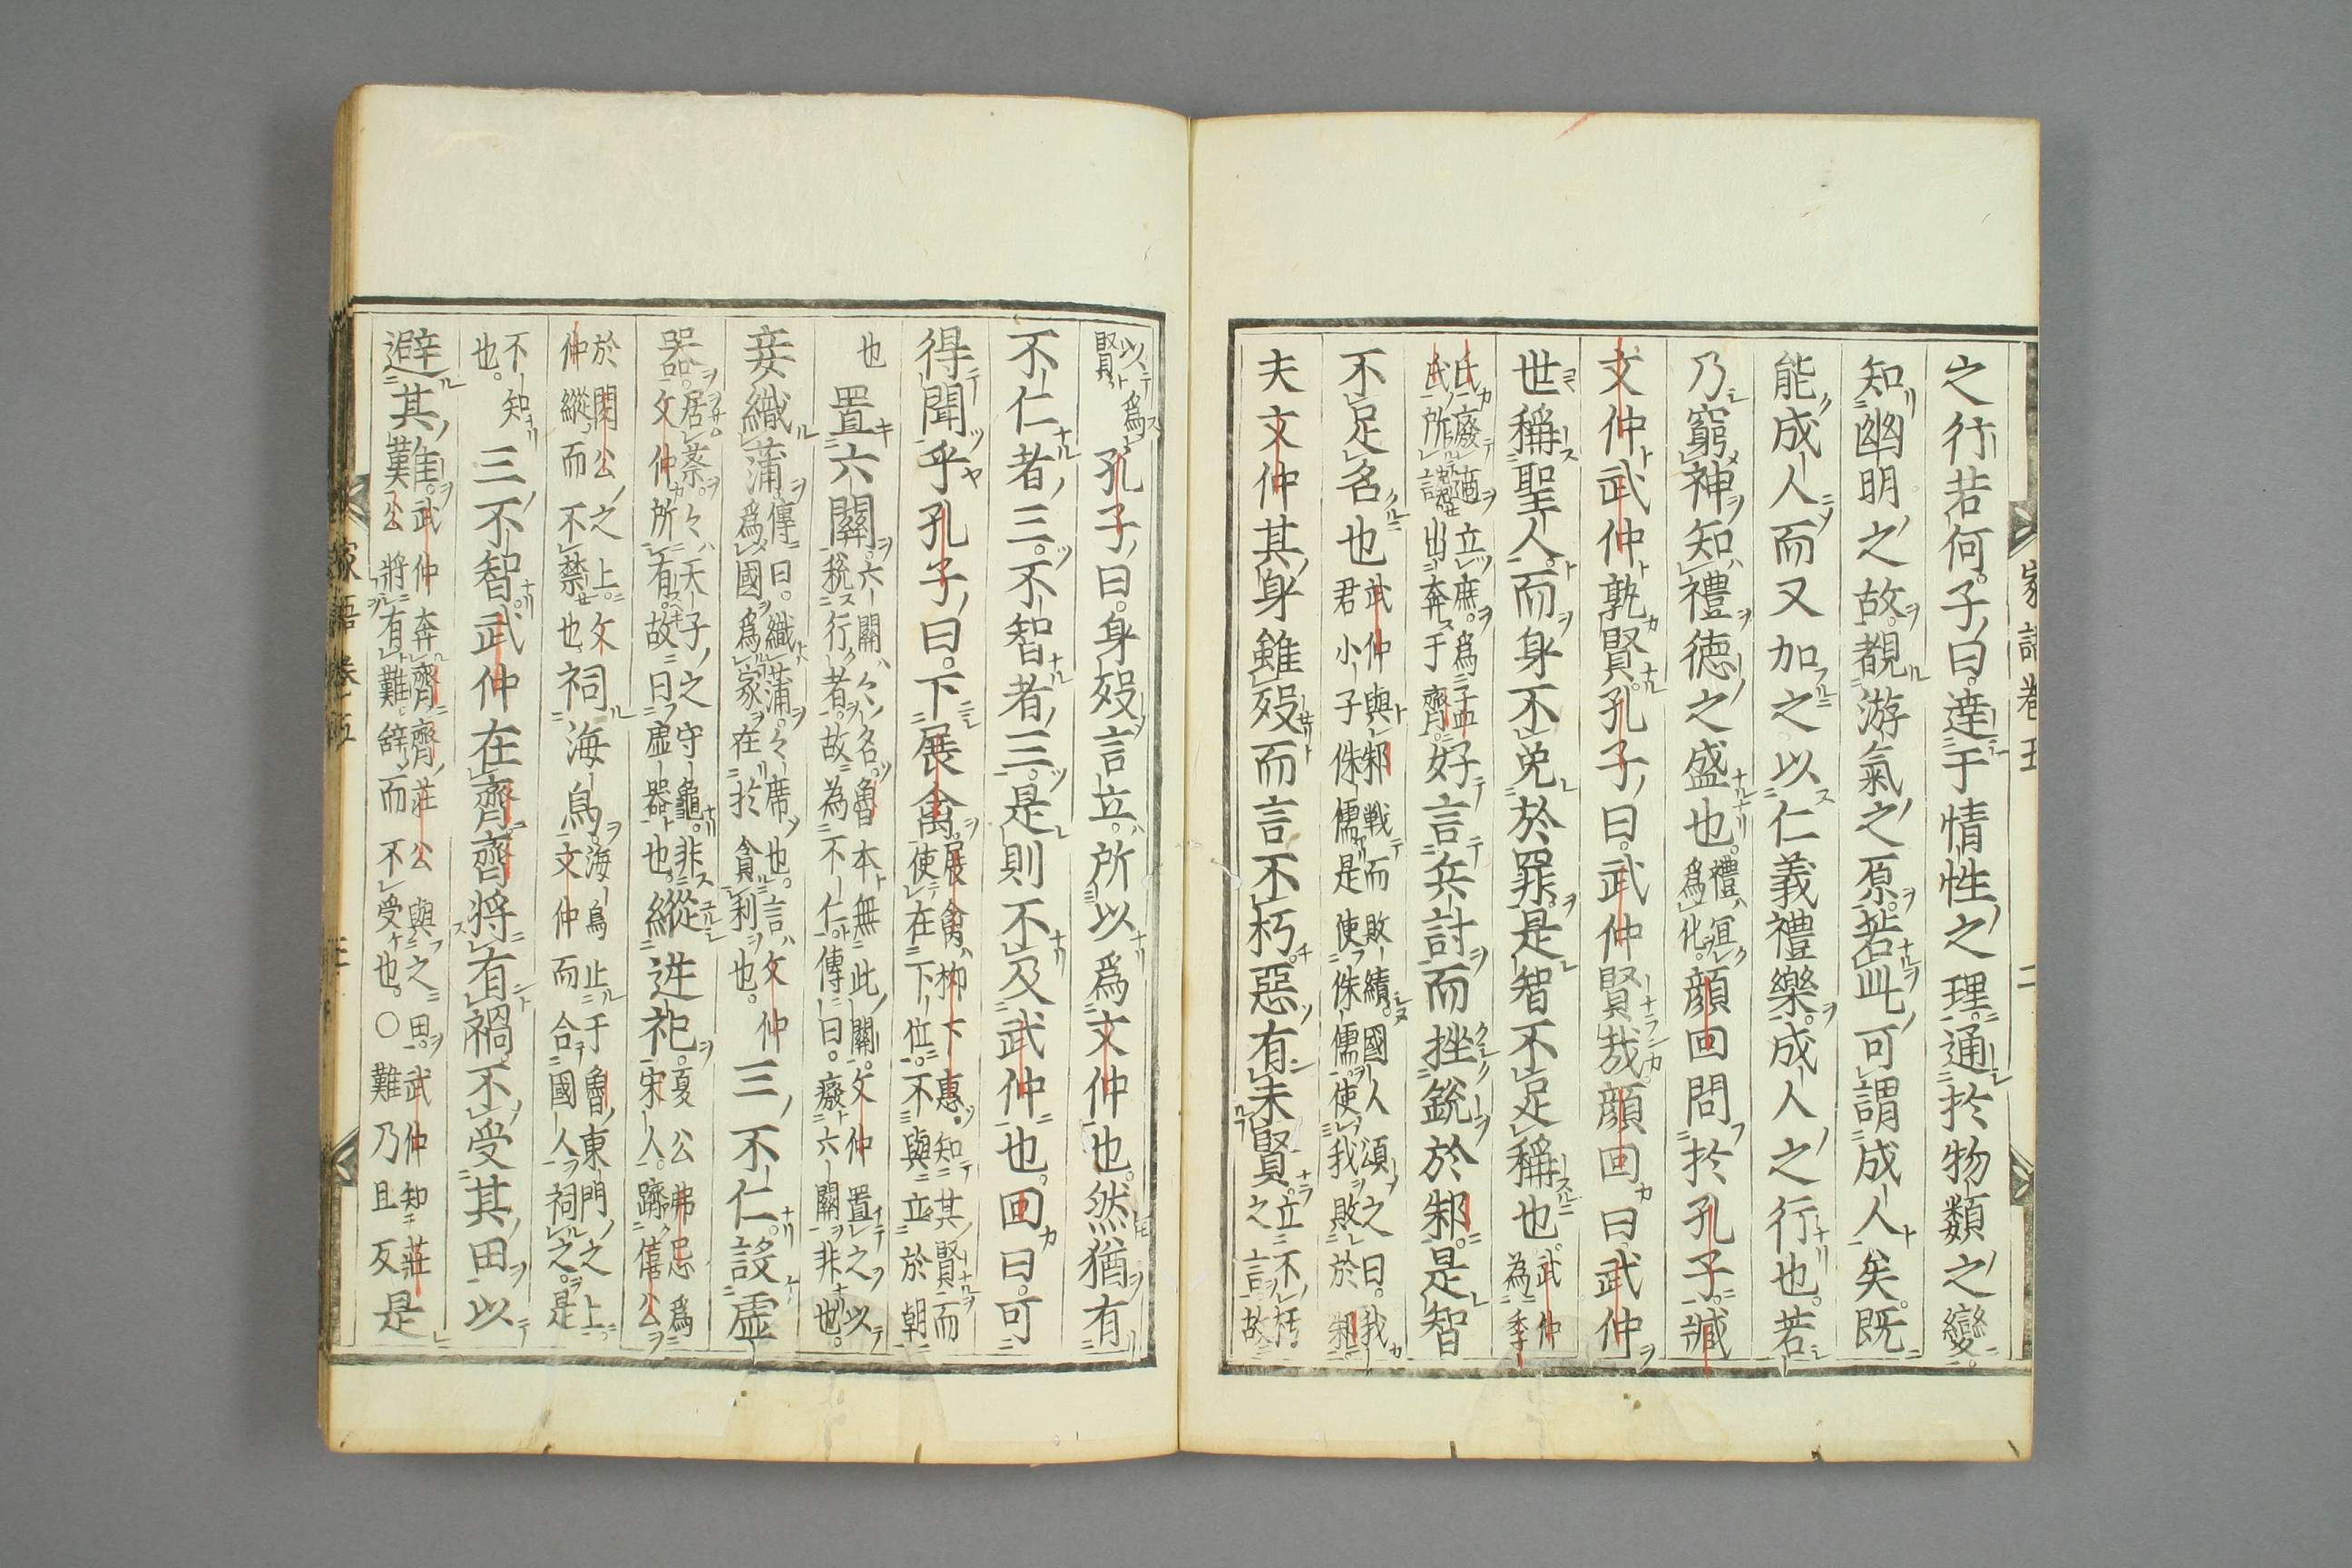 之行若何子曰達于情性之理通於物類之變
知幽明之故覩游氣之原若此可謂成人矣既
能成人而又加之以仁義禮樂成人之行也若
乃窮神知禮德之盛也禮冥爲化顔回問於孔子臧
文仲武仲孰賢孔子曰武仲賢哉顔回曰武仲
世稱聖人而身不免於罪是智不足稱也武仲爲季
氏廢適立庶爲孟氏所譖出奔于齊好言兵討而挫銳於邾是智
不足名也武仲與邾戰而敗績國人頌之曰我君小子侏儒是使侏儒使我敗於邾
夫文仲其身雖歿而言不朽惡有未賢立不朽之言故
以爲賢孔子曰身歿言立所以爲文仲也然猶有
不仁者三不智者三是則不及武仲也回曰可
得聞乎孔子曰下展禽展禽柳下惠知其賢而使在下位不與立於朝
也置六關六關關名魯本無此關文仲置之以稅行者故為不仁傳曰廢六關非也
妾織蒲傳曰織蒲蒲席也言文仲爲國爲家在於貪利也三不仁設虛
器居蔡蔡天子之守龜非文仲所有故曰虛器也縱逆祀夏公弗忌爲宋人躋僖公
於閔公之上文仲縱而不禁也祠海鳥海鳥止于魯東門之上文仲而合國人祠之是
不知也三不智武仲在齊齊將有禍不受其田以
避其難武仲奔齊齊莊公與之田武仲知莊公將有難辭而不受也〇難乃且反是
家語卷五
二
家語卷五
三